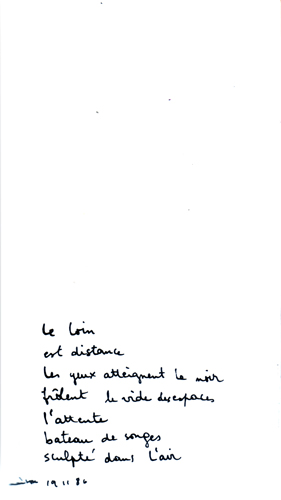 le loin
est distance
les yeux atteignent le noir
frôlent le vide des espaces
l'attente
bateau de songes
sculpté dans l'air
19 11 86